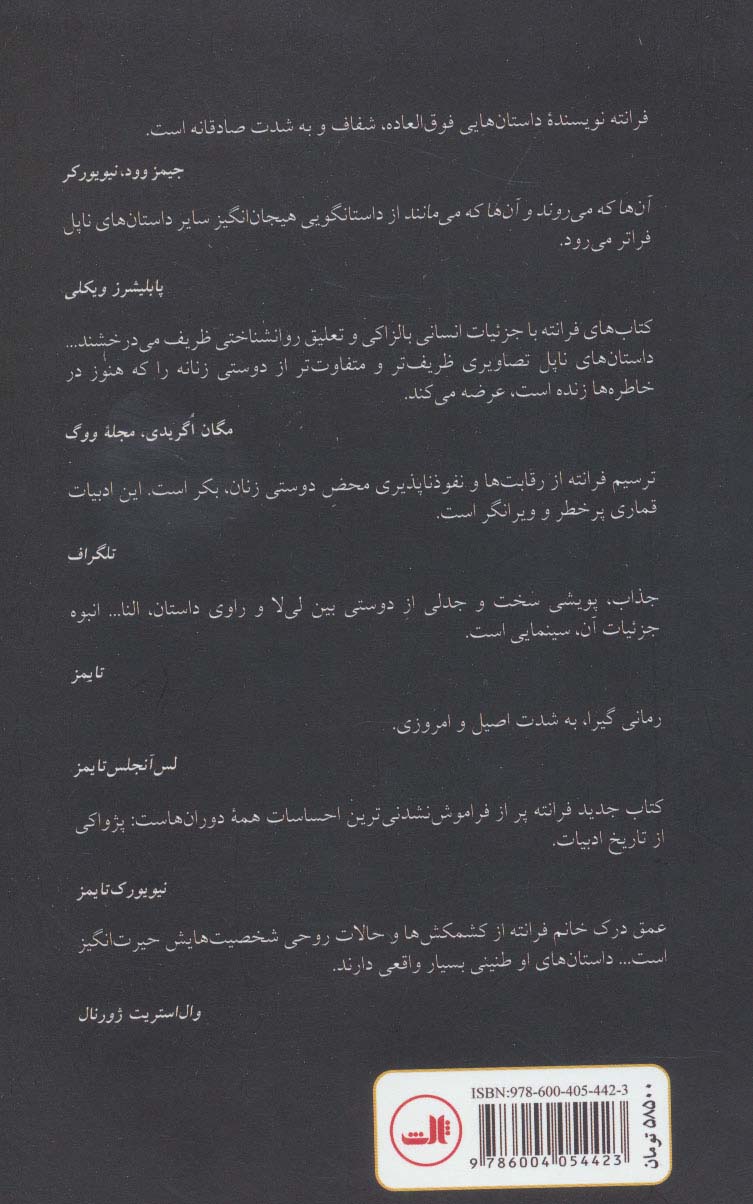 فرانته نویسندهٔ داستان‌هایی فوق‌العاده، شفاف و به شدت صادقانه است.
جیمز وود، نیویورکر
آن‌ها که می‌روند و آن‌ها که می‌مانند از داستانگویی هیجان‌انگیز سایر داستان‌های ناپل
فراتر می‌رود.
پابلیشرز ویکلی
کتاب‌های فرانته با جزئیات انسانی بالزاکی و تعلیق روانشناختی ظریف می‌درخشند...
داستان‌های ناپل تصاویری ظریف‌تر و متفاوت‌تر از دوستی زنانه را که هنوز در
خاطره‌ها زنده است، عرضه می‌کند.
مگان اُگریدی، مجلهٔ ووگ
ترسیم فرانته از رقابت‌ها و نفوذناپذیری محضِ دوستی زنان، بکر است. این ادبیات
قماری پرخطر و ویرانگر است.
تلگراف
جذاب، پویشی سخت و جدلی از دوستی بین لی‌لا و راوی داستان، النا... انبوه
جزئیات آن، سینمایی است.
تایمز
رمانی گیرا، به شدت اصیل و امروزی.
لس‌آنجلس‌تایمز
کتاب جدید فرانته پر از فراموش‌نشدنی‌ترین احساسات همهٔ دوران‌هاست: پژواکی
از تاریخ ادبیات.
نیویورک‌تایمز
عمق درک خانم فرانته از کشمکش‌ها و حالات روحی شخصیت‌هایش حیرت‌انگیز
است... داستان‌های او طنینی بسیار واقعی دارند.
وال‌استریت ژورنال
ISBN:978-600-405-442-3
9 786004 054423
۵۸۵۰۰ تومان
ثالث